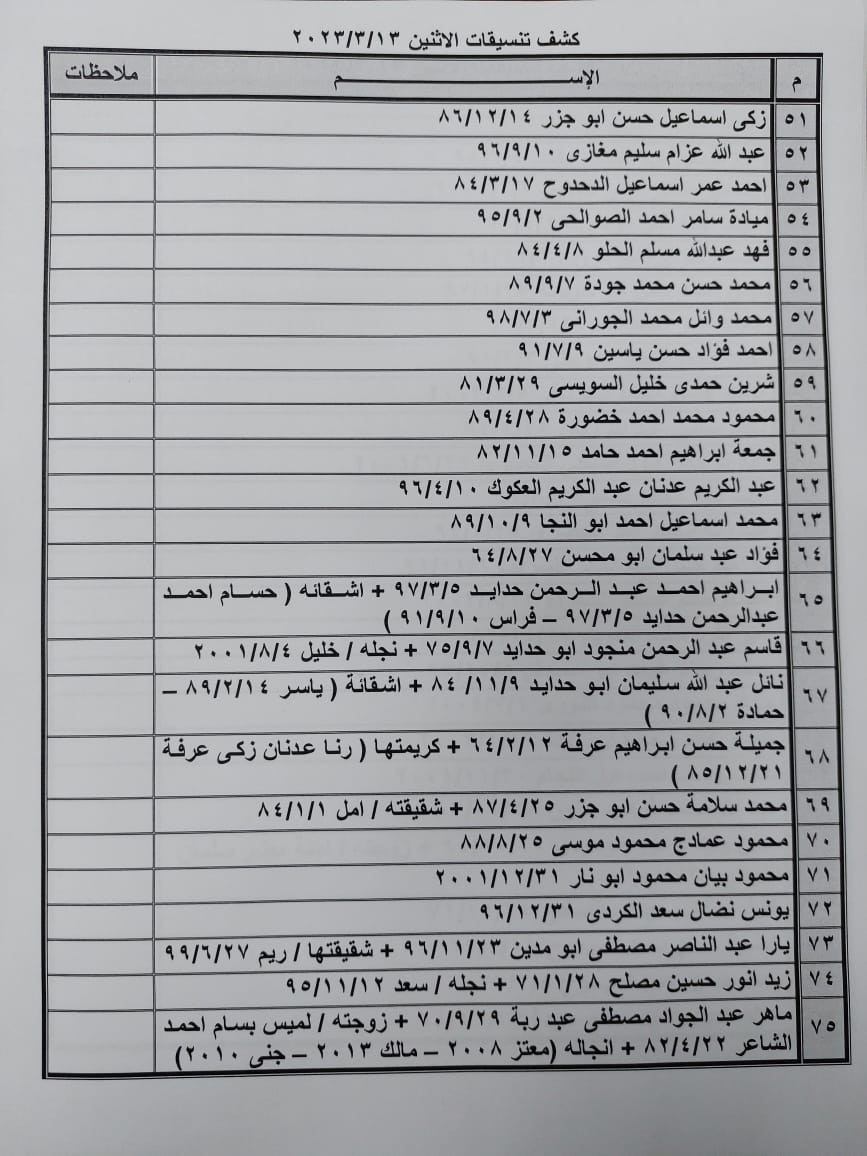 كشف تنسيقات الاثنين ٢٠٢٣/٣/١٣
م الإســـــــم ملاحظات
٥١ زكى اسماعيل حسن ابو جزر ٨٦/١٢/١٤
٥٢ عبد الله عزام سليم مغازى ٩٦/٩/١٠
٥٣ احمد عمر اسماعيل الدحدوح ٨٤/٣/١٧
٥٤ ميادة سامر احمد الصوالحى ٩٥/٩/٢
٥٥ فهد عبدالله مسلم الحلو ٨٤/٤/٨
٥٦ محمد حسن محمد جودة ٨٩/٩/٧
٥٧ محمد وائل محمد الجورانى ٩٨/٧/٣
٥٨ احمد فؤاد حسن ياسين ٩١/٧/٩
٥٩ شرين حمدى خليل السويسى ٨١/٣/٢٩
٦٠ محمود محمد احمد خضورة ٨٩/٤/٢٨
٦١ جمعة ابراهيم احمد حامد ٨٢/١١/١٥
٦٢ عبد الكريم عدنان عبد الكريم العكوك ٩٦/٤/١٠
٦٣ محمد اسماعيل احمد ابو النجا ٨٩/١٠/٩
٦٤ فؤاد عبد سلمان ابو محسن ٦٤/٨/٢٧
٦٥ ابـراهيم احمـد عبـد الـرحمن حدايـد ٩٧/٣/٥ + اشـقائه ( حسـام احمـد
عبدالرحمن حدايد ٩٧/٣/٥ – فراس ٩١/٩/١٠ )
٦٦ قاسم عبد الرحمن منجود ابو حدايد ٧٥/٩/٧ + نجله / خليل ٢٠٠١/٨/٤
٦٧ نائل عبد الله سليمان ابو حدايد ٨٤/١١/٩ + اشقائة ( ياسر ٨٩/٢/١٤ –
حمادة ٩٠/٨/٢ )
٦٨ جميلـة حسن ابـراهيم عرفـة ٦٤/٢/١٢ + كريمتهـا ( رنـا عدنان زكـى عرفـة
٨٥/١٢/٢١ )
٦٩ محمد سلامة حسن ابو جزر ٨٧/٤/٢٥ + شقيقته / امل ٨٤/١/١
٧٠ محمود عمادج محمود موسى ٨٨/٨/٢٥
٧١ محمود بيان محمود ابو نار ٢٠٠١/١٢/٣١
٧٢ يونس نضال سعد الكردى ٩٦/١٢/٣١
٧٣ يارا عبد الناصر مصطفى ابو مدين ٩٦/١١/٢٣ + شقيقتها / ريم ٩٩/٦/٢٧
٧٤ زيد انور حسين مصلح ٧١/١/٢٨ + نجله / سعد ٩٥/١١/١٢
٧٥ ماهر عبد الجواد مصطفى عبد ربة ٧٠/٩/٢٩ + زوجته / لميس بسام احمد
الشاعر ٨٢/٤/٢٢ + انجاله (معتز ٢٠٠٨ – مالك ٢٠١٣ – جنى ٢٠١٠)